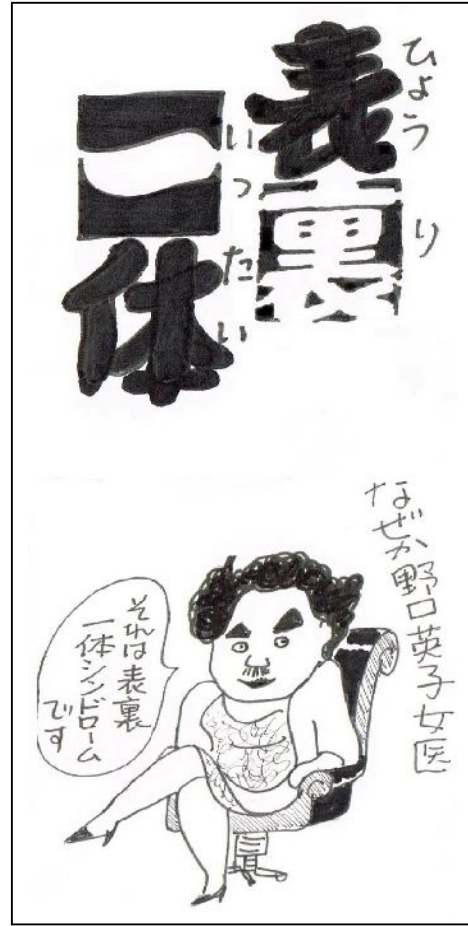 表裏
ひょうり
一体
いったい
なぜか野口英子女医
それは表裏
一体シンドローム
です